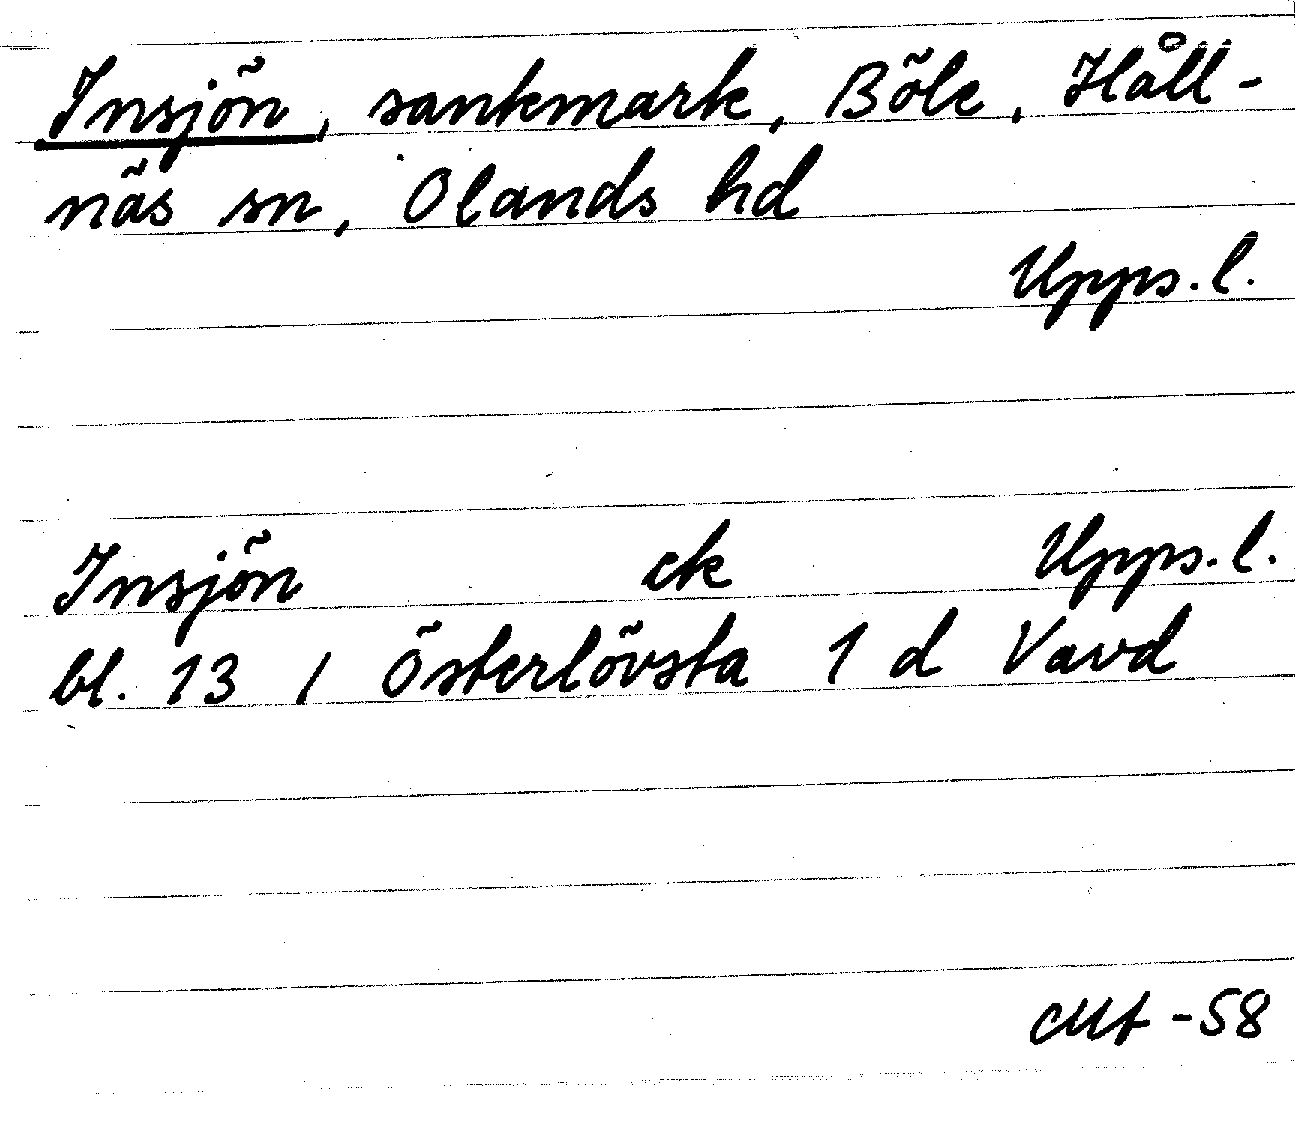 Insjön, sankmark, Böle, Håll-
näs sn, Olands hd
Upps.l.
Insjön ek Upps.l.
bl. 13 I Österlövsta 1 d Vavd
-58